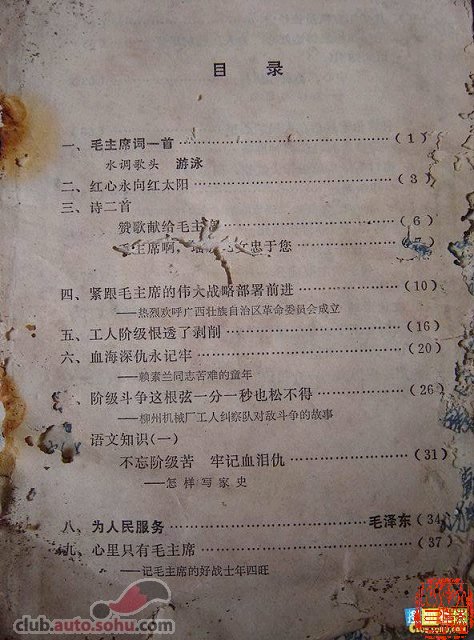 目 录
一、毛主席词一首……(1)
水调歌头 游泳
二、红心永向红太阳……(3)
三、诗二首
赞歌献给毛主席……(6)
主席啊，忠于您……
四、紧跟毛主席的伟大战略部署前进……(10)
——热烈欢呼广西壮族自治区革命委员会成立
五、工人阶级恨透了剥削……(16)
六、血海深仇永记牢……(20)
——赖素兰同志苦难的童年
、阶级斗争这根弦一分一秒也松不得……(26)
——柳州机械厂工人纠察队对敌斗争的故事
语文知识(一)
不忘阶级苦 牢记血泪仇……(31)
——怎样写家史
八、为人民服务……毛泽东(34)
九、心里只有毛主席……(37)
——记毛主席的好战士年四旺
club.auto.sohu.com